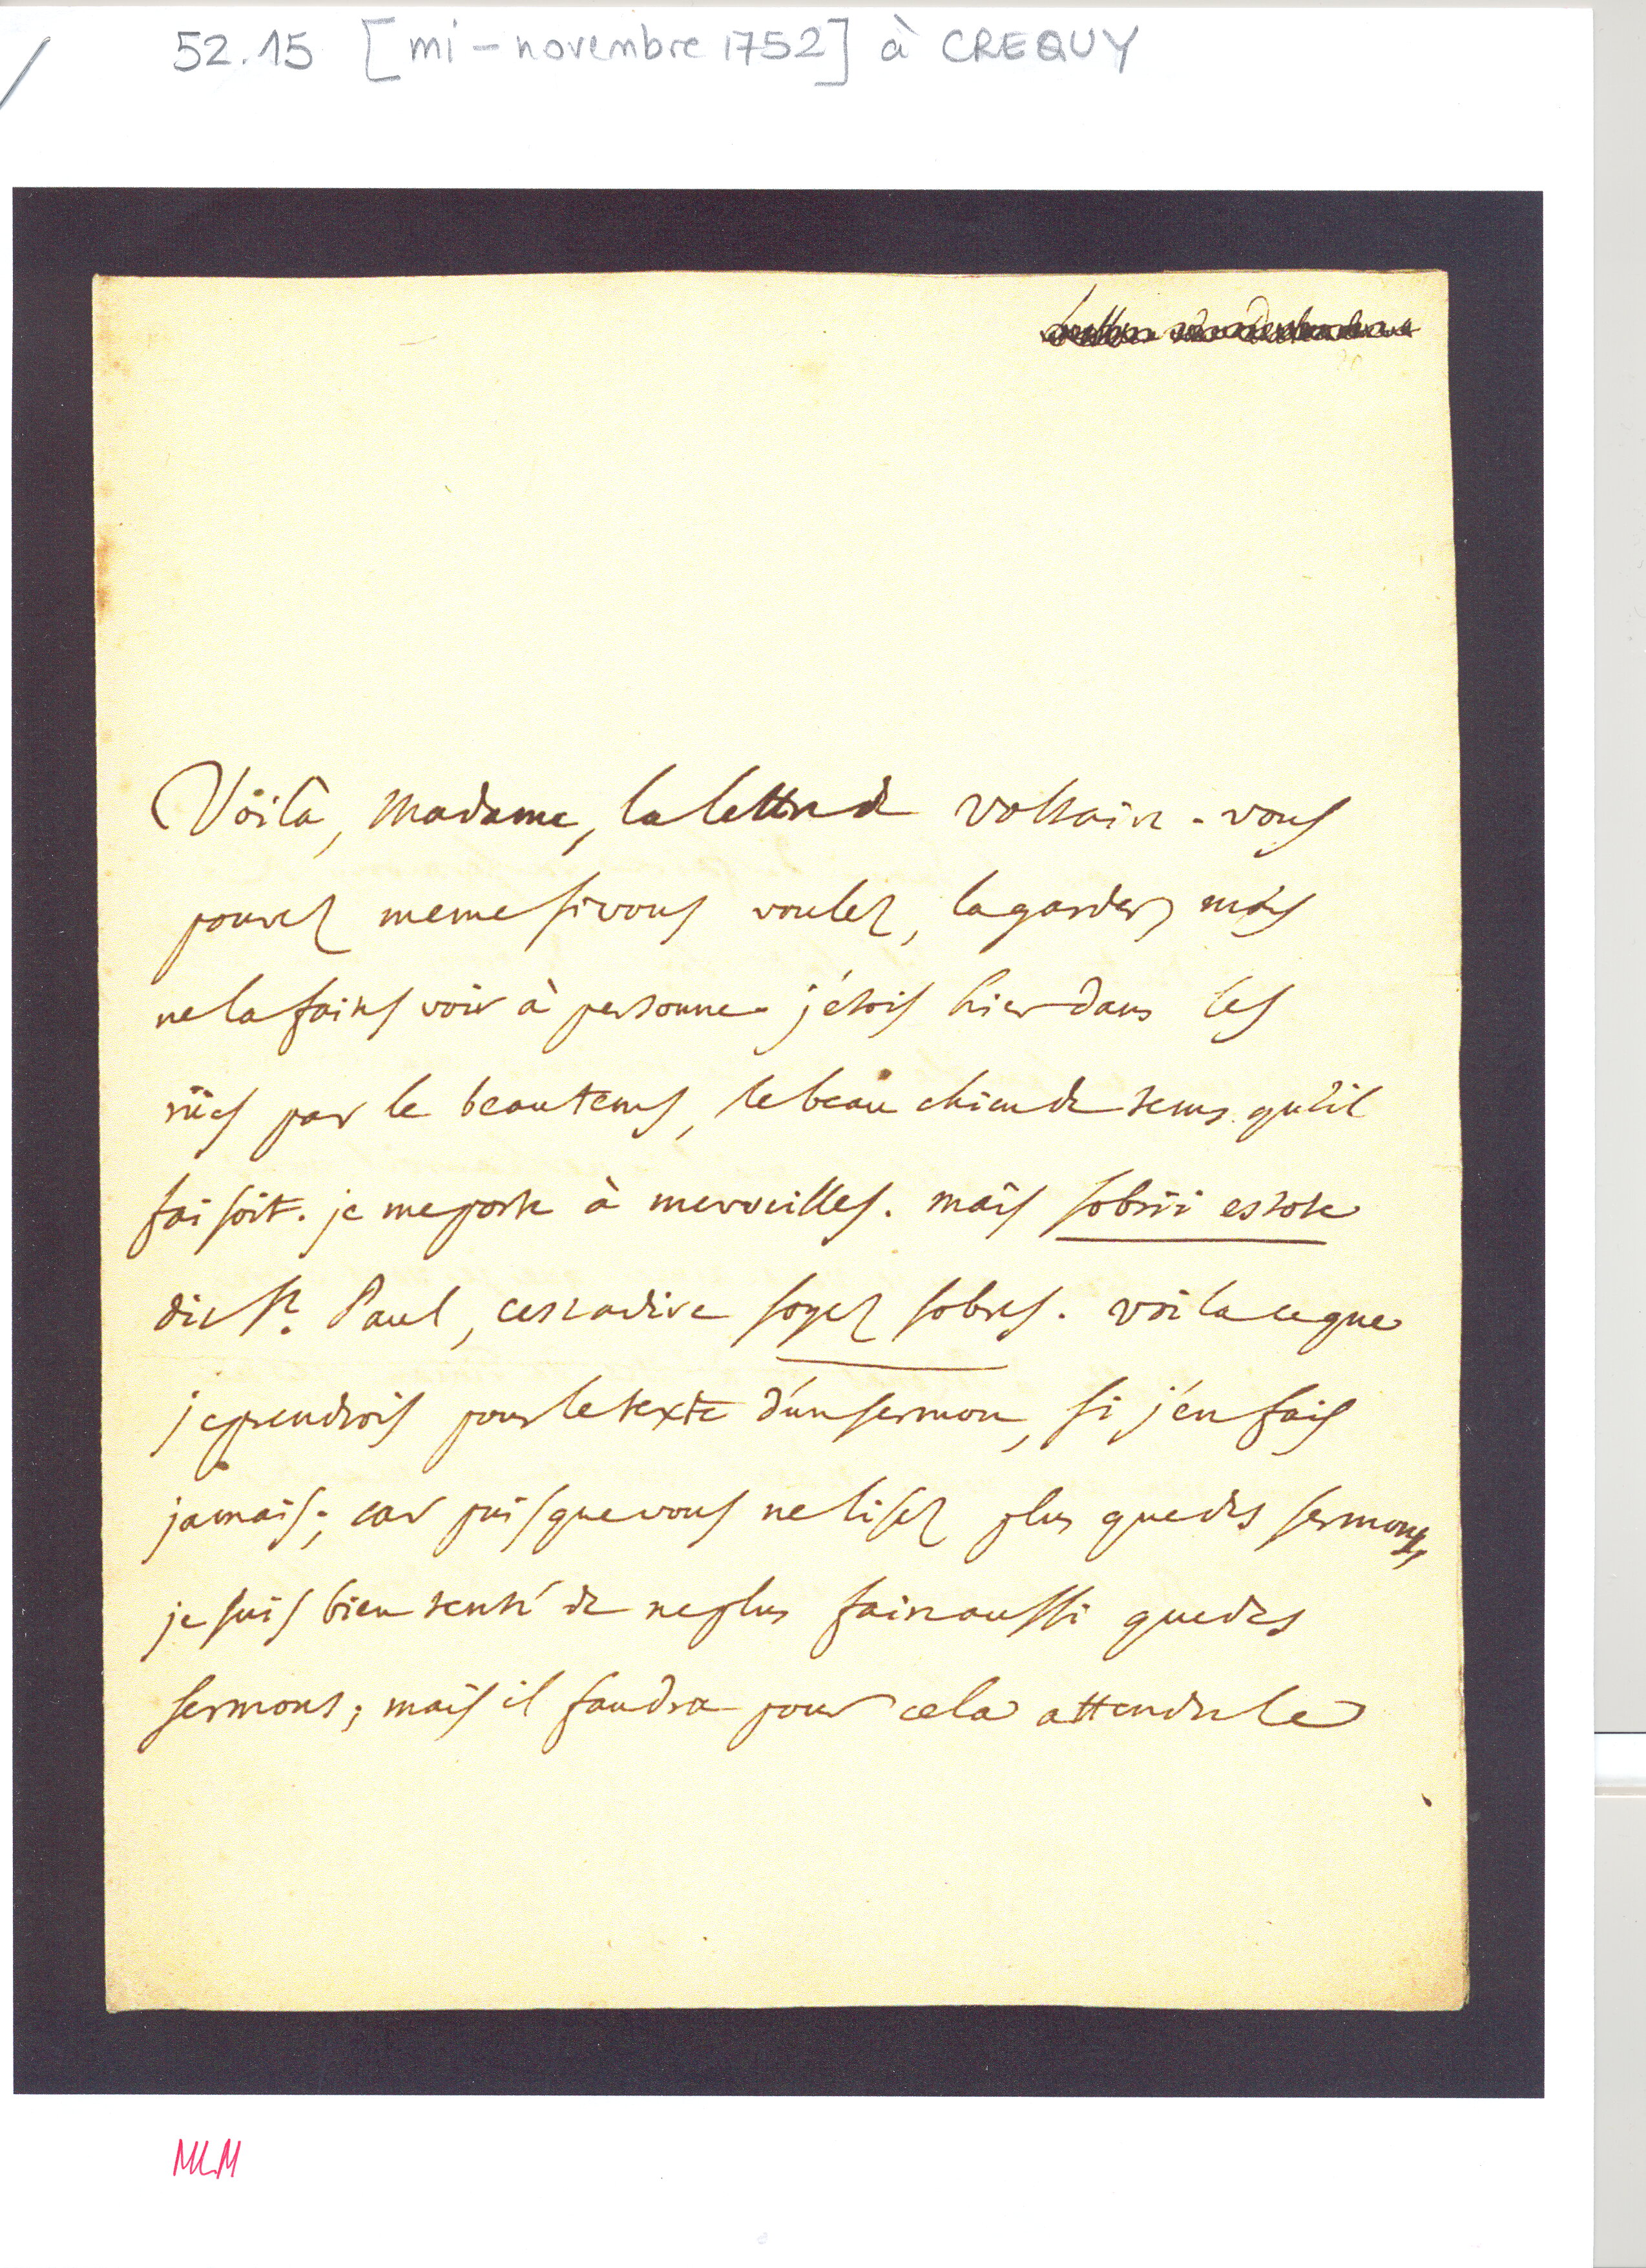 52.15 [mi-novembre 1752] à CREQUY
Voila, Madame, la lettre de voltaire. vous
pouvez meme si vous voulez, la garder, mais
ne la faites voir à personne. j'étois hier dans les
rües par le beau tems, le beau chien de tems qu'il
faisoit. je me porte à merveilles. mais sobrii estote
dit St. Paul, cest a dire soyez sobres. voila ce que
je prendrois pour le texte d'un sermon, si j'en fais
jamais; car puisque vous ne lisez plus que des sermons,
je suis bien tenté de ne plus faire aussi que des
sermons; mais il faudra pour cela attendre le
MLM